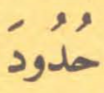 حُدُودَ